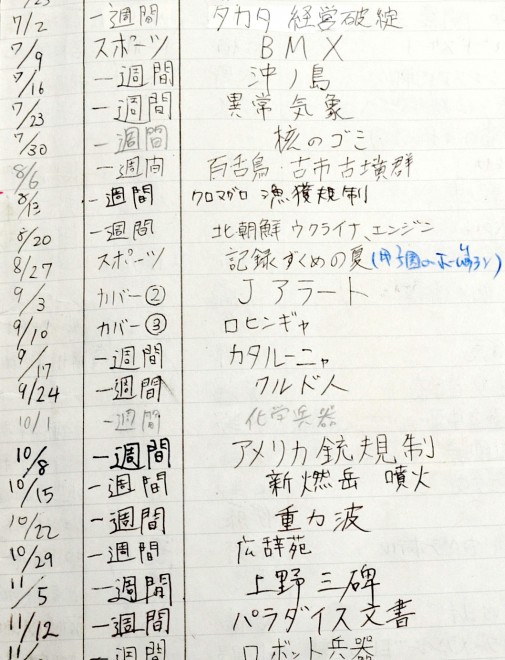 7/2 一週間 タカタ 経営破綻
7/9 スポーツ BMX
7/16 一週間 沖ノ島
7/23 一週間 異常気象
7/30 一週間 核のゴミ
8/6 一週間 百舌鳥・古市古墳群
8/13 一週間 クロマグロ 漁獲規制
8/20 一週間 北朝鮮 ウクライナ、エンジン
8/27 スポーツ 記録ずくめの夏(甲子園のホームラン)
9/3 カバー② Jアラート
9/10 カバー③ ロヒンギャ
9/17 一週間 カタルーニャ
9/24 一週間 クルド人
10/1 一週間 化学兵器
10/8 一週間 アメリカ銃規制
10/15 一週間 新燃岳 噴火
10/22 一週間 重力波
10/29 一週間 広辞苑
11/5 一週間 上野三碑
11/12 一週間 パラダイス文書
11/ 一週間 ロボット兵器